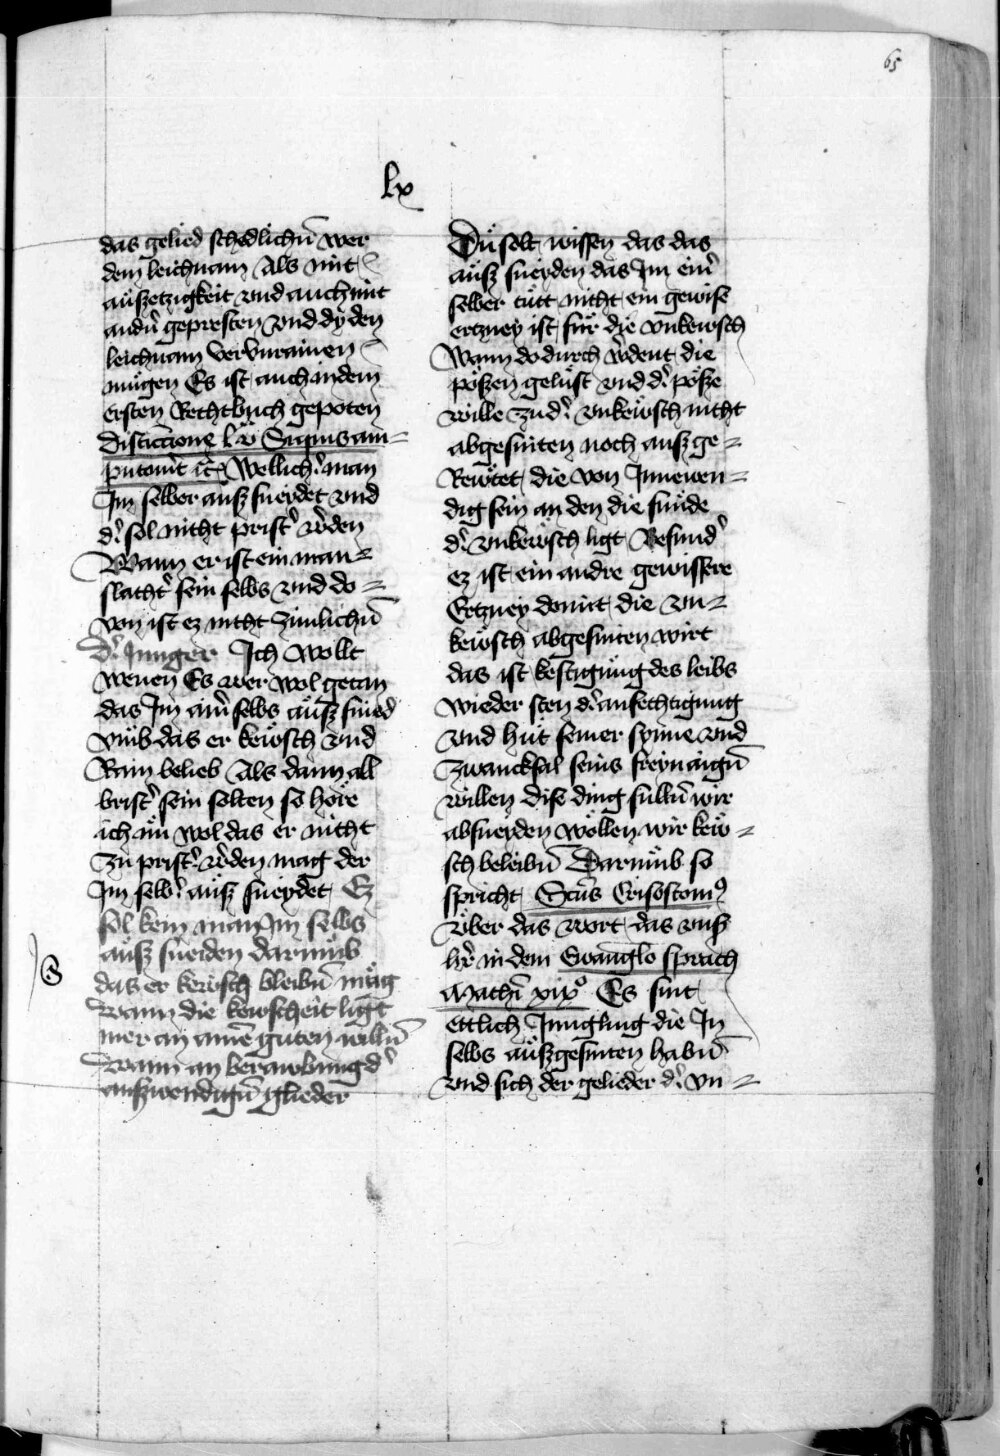 65
lx
das gelied schedlichn̄ wer
dem leichnam Als mit
aüszetzigkeit vnd auch mit
andn̄ gepresten vnd dy den
leichnam vervnrainen
mügen Es ist auch in dem
ersten Rechtbuch gepoten
distinccione lv Siquis am=
putauit ic̄ Wellich' man
Im selber ausz sneydet vnd
d' sol nicht prist' w'den
Wann er ist ein man=
slacht' sein selbs vnd do=
von ist ez nicht zimlichn̄
D' Junger Ich wollt
wenen Es wer wol getan
das Im aīn selbs aüsz snied
vmb das er keüsch vnd
Rain belieb Als dann all
brist' sein solten so höre
ich nü wol das er nicht
zu prist' w'den mag der
Im selb' aüsz sneydet Ez
sol kein man Im selbs
aüsz sneiden darumb
das er kewsch bleibn̄ müg
wann die kewscheit ligt
mer an aine guten willn̄
wann an berawbung d'
auszwendign̄ glieder
Dü solt wissen das das
aüsz sneyden das Im ein'
selber tütt nicht ein gewise
ertzney ist für die vnkewsch
Wann do durch w'dent die
pöszen gelüst vnd d' pösze
wille zu d' vnkewsch nicht
abgesniten noch ausz ge=
Rewtet die von Innewen=
dig sein an den die sünde
d' vnkewsch ligt Besund'
ez ist ein andre gewissere
Ertzney domit die vn=
kewsch abgesniten wirt
das ist kestigung des leibs
wieder sten d' anfechtigung
vnd hüt seiner synne vnd
zwancksal seins freyn aign̄
willen dise ding sulln̄ wir
absneyden wöllen wir kew=
sch beleibn̄ Darumb so
spricht Scūs Crisostomꝰ
über das wort das vns
h'r in dem Ewanglo sprach
Mathei xix° Es sint
ettlich Jungling die In
selbs aüszgesniten habn̄
vnd sich der gelieder d' vn=